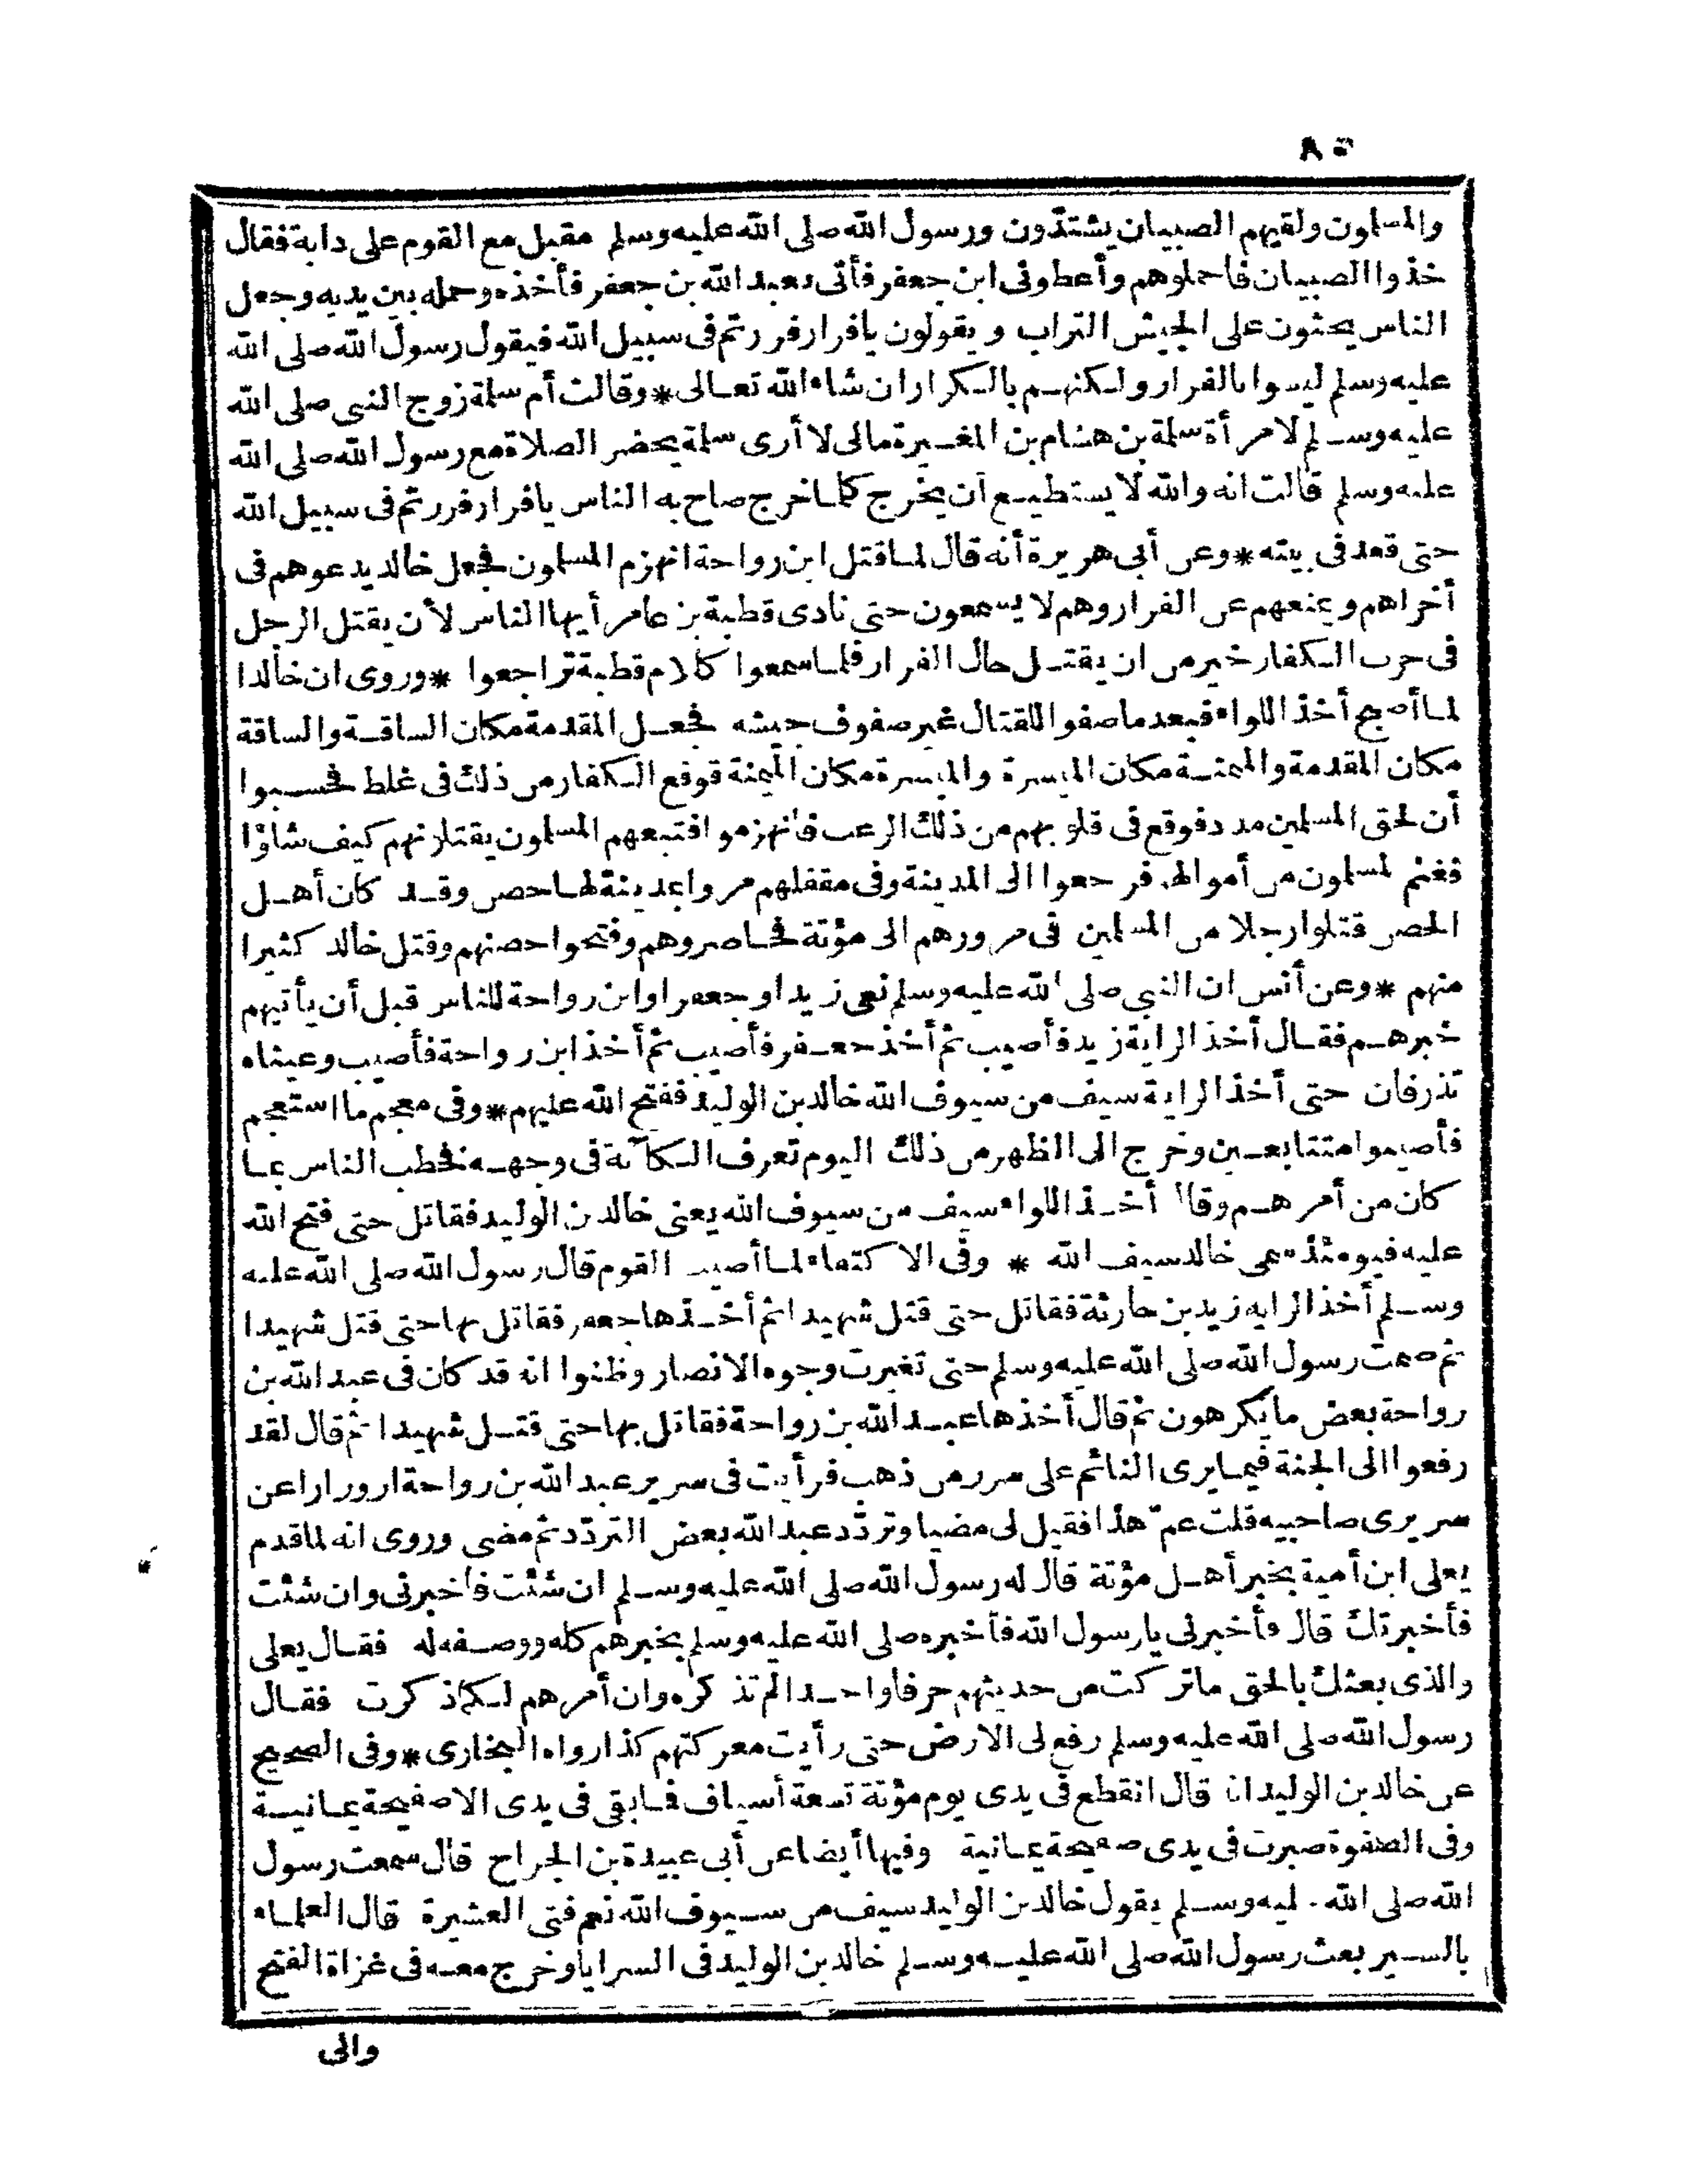 والمسلمون ولقيهم الصبيان يشتدّون ورسول الله صلى الله عليه وسلم مقبل مع القوم على دابة فقال
خذوا الصبيان فاحملوهم وأعطونى ابن جعفر فأتى بعبد الله بن جعفر فأخذه وحمله بين يديه وجعل
الناس يحثون على الجيش التراب ويقولون يافرار فررتم فى سبيل الله فيقول رسول الله صلى الله
عليه وسلم ليسوا بالفرار ولكنهم بالكرار ان شاء الله تعالى * وقالت أم سلمة زوج النبى صلى الله
عليه وسلم لامرأة سلمة بن هشام بن المغيرة مالى لا أرى سلمة يحضر الصلاة مع رسول الله صلى الله
عليه وسلم قالت انه والله لا يستطيع أن يخرج كلما خرج صاح به الناس يافرار فررتم فى سبيل الله
حتى قعد فى بيته * وعن أبى هريرة أنه قال لما قتل ابن رواحة انهزم المسلمون فجعل خالد يدعوهم فى
أخراهم ويمنعهم عن الفرار وهم لا يسمعون حتى نادى قطبة بن عامر أيها الناس لأن يقتل الرجل
فى حرب الكفار خير من ان يقتل حال الفرار فلما سمعوا كلام قطبة تراجعوا * وروى ان خالدا
لما أصبح أخذ اللواء فبعد ما صفوا للقتال غير صفوف جيشه فجعل المقدمة مكان الساقة والساقة
مكان المقدمة والميمنة مكان الميسرة والميسرة مكان الميمنة فوقع الكفار من ذلك فى غلط فحسبوا
أن لحق المسلمين مدد فوقع فى قلوبهم من ذلك الرعب فانهزموا فتبعهم المسلمون يقتلونهم كيف شاؤا
فغنم المسلمون من أموالهم فرجعوا الى المدينة وفى مقفلهم مروا بمدينة لها حصن وقد كان أهل
الحصن قتلوا رجلا من المسلمين فى مرورهم الى مؤتة فحاصروهم وفتحوا حصنهم وقتل خالد كثيرا
منهم * وعن أنس ان النبى صلى الله عليه وسلم نعى زيدا وجعفرا وابن رواحة للناس قبل أن يأتيهم
خبرهم فقال أخذ الراية زيد فأصيب ثم أخذ جعفر فأصيب ثم أخذ ابن رواحة فأصيب وعيناه
تذرفان حتى أخذ الراية سيف من سيوف الله خالد بن الوليد ففتح الله عليهم * وفى معجم ما استعجم
فأصيبوا متتابعين وخرج الى الظهر من ذلك اليوم تعرف الكآبة فى وجهه فخطب الناس بما
كان من أمرهم وقال أخذ اللواء سيف من سيوف الله يعنى خالد بن الوليد فقاتل حتى فتح الله
عليه فيومئذ سمى خالد سيف الله * وفى الاكتفاء لما أصيب القوم قال رسول الله صلى الله عليه
وسلم أخذ الراية زيد بن حارثة فقاتل حتى قتل شهيدا ثم أخذها جعفر فقاتل بها حتى قتل شهيدا
ثم صمت رسول الله صلى الله عليه وسلم حتى تغيرت وجوه الانصار وظنوا انه قد كان فى عبد الله بن
رواحة بعض ما يكرهون ثم قال أخذها عبد الله بن رواحة فقاتل بها حتى قتل شهيدا ثم قال لقد
رفعوا الى الجنة فيما يرى النائم على سرر من ذهب فرأيت فى سرير عبد الله بن رواحة ازورارا عن
سريرى صاحبيه فقلت عمّ هذا فقيل لى مضيا وتردّد عبد الله بعض التردّد ثم مضى وروى انه لما قدم
يعلى ابن أمية بخبر أهل مؤتة قال له رسول الله صلى الله عليه وسلم ان شئت فأخبرنى وان شئت
فأخبرتك قال فأخبرنى يارسول الله فأخبره صلى الله عليه وسلم بخبرهم كله ووصفه له فقال يعلى
والذى بعثك بالحق ماتركت من حديثهم حرفا واحدا لم تذكره وان أمرهم لكما ذكرت فقال
رسول الله صلى الله عليه وسلم رفع لى الارض حتى رأيت معركتهم كذا رواه البخارى * وفى الصحيح
عن خالد بن الوليد انه قال انقطع فى يدى يوم مؤتة تسعة أسياف فما بقى فى يدى الا صفيحة يمانية
وفى الصفوة صبرت فى يدى صفيحة يمانية وفيها أيضا عن أبى عبيدة بن الجراح قال سمعت رسول
الله صلى الله عليه وسلم يقول خالد بن الوليد سيف من سيوف الله نعم فتى العشيرة قال العلماء
بالسير بعث رسول الله صلى الله عليه وسلم خالد بن الوليد فى السرايا وخرج معه فى غزاة الفتح
والى